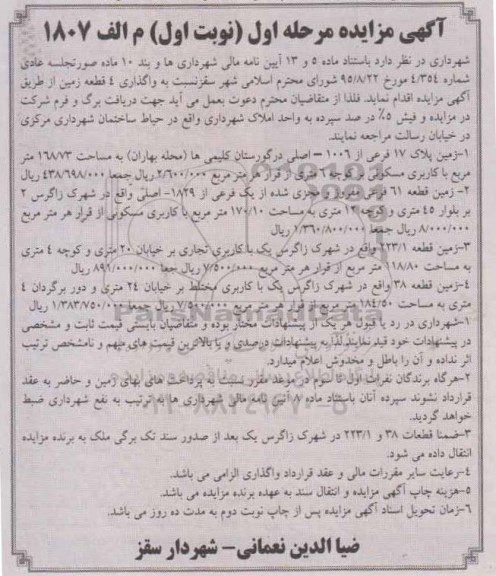 آگهی مزایده مرحله اول (نوبت اول) م الف ۱۸۰۷
شهرداری در نظر دارد باستناد ماده ۵ و ۱۳ آیین نامه مالی شهرداری ها و بند ۱۰ ماده صورتجلسه عادی
شماره ۴/۳۵۴ مورخ ۹۵/۸/۲۲ شورای محترم اسلامی شهر سقزنسبت به واگذاری ۴ قطعه زمین از طریق
آگهی مزایده اقدام نماید. فلذا از متقاضیان محترم دعوت بعمل می آید جهت دریافت برگ و فرم شرکت
در مزایده و فیش ۵٪ در صد سپرده به واحد املاک شهرداری واقع در حیاط ساختمان شهرداری مرکزی
در خیابان رسالت مراجعه نمایند.
۱-زمین پلاک ۱۷ فرعی از ۱۰۰۶ – اصلی درگورستان کلیمی ها (محله بهاران) به مساحت ۱۶۸/۷۳ متر
مربع با کاربری مسکونی و کوچه ۶ متری از قرار هر متر مربع ۲/۶۰۰/۰۰۰ ریال جمعا ۴۳۸/۶۹۸/۰۰۰ ریال
۲- زمین قطعه ۶۱ فرعی مفروز و مجزی شده از یک فرعی از ۱۸۲۹- اصلی واقع در شهرک زاگرس ۲
بر بلوار ۴۵ متری و کوچه ۱۲ متری به مساحت ۱۷۰/۱۰ متر مربع با کاربری مسکونی از قرار هر متر مربع
۸/۰۰۰/۰۰۰ ریال جمعا ۱/۳۶۰/۸۰۰/۰۰۰ ریال
۳-زمین قطعه ۲۲۳/۱ واقع در شهرک زاگرس یک با کاربری تجاری بر خیابان ۲۰ متری و کوچه ۴ متری
به مساحت ۱۱۸/۸۰ متر مربع از قرار هر متر مربع ۷/۵۰۰/۰۰۰ ریال جمعا ۸۹۱/۰۰۰/۰۰۰ ریال
۴-زمین قطعه ۳۸ واقع در شهرک زاگرس یک با کاربری مختلط بر خیابان ۲۴ متری و دور برگردان ۴
متری به مساحت ۱۸۴/۵۰ متر مربع از قرار هر متر مربع ۷/۵۰۰/۰۰۰ ریال جمعا ۱/۳۸۳/۷۵۰/۰۰۰ ریال
۱-شهرداری در رد یا قبول هر یک از پیشنهادات مختار بوده و متقاضیان بایستی قیمت ثابت و مشخصی
در پیشنهادات خود قید نمایند لذا به پیشنهادات درصدی و یا بالاترین قیمت های مبهم و نامشخص ترتیب
اثر نداده و آن را باطل و مخدوش اعلام میدارد.
۲-هرگاه برندگان نفرات اول تا سوم در موعد مقرر نسبت به پرداخت های بهای زمین و حاضر به عقد
قرارداد نشوند سپرده آنان باستناد ماده ۸ آئین نامه مالی شهرداری ها به ترتیب به نفع شهرداری ضبط
خواهد گردید.
۳-ضمنا قطعات ۳۸ و ۲۲۳/۱ در شهرک زاگرس یک بعد از صدور سند تک برگی ملک به برنده مزایده
انتقال داده می شود.
۴-رعایت سایر مقررات مالی و عقد قرارداد واگذاری الزامی می باشد.
۵-هزینه چاپ آگهی مزایده و انتقال سند به عهده برنده مزایده می باشد.
۶-زمان تحویل اسناد آگهی مزایده پس از چاپ نوبت دوم به مدت ده روز می باشد.
ضیا الدین نعمانی- شهردار سقز
ParsNamadData
۰۲۱-۸۸۳۴۹۶۷۰-۵